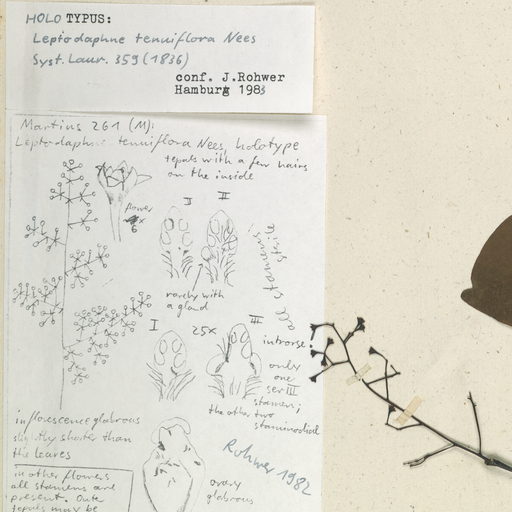 HOLO TYPUS:
Leptodaphne tenuiflora Nees
Syst. Laur. 359 (1836)
conf. J.Rohwer
Hamburg 1983
Martius 261 (M):
Leptodaphne tenuiflora Nees, holotype
tepals with a few hairs
on the inside
flower
6x
I
II
all stamens sterile
rarely with
a gland
I
25x
III
introrse!
only
one
ser III
stamen;
the other two
staminodial
inflorescence glabrous
slightly shorter than
the leaves
Rohwer 1982
ovary
glabrous
in other flowers
all stamens are
present. Outer
tepals may be